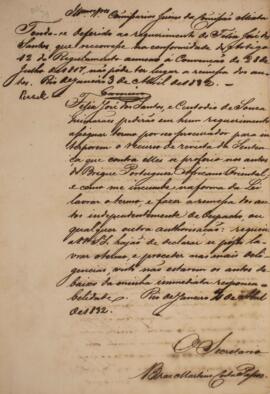 Tendo-se deferido ao requerimento de Felix José dos
Santos, que recorresse, na conformidade do Artigo
12 do Regulamento annexo á Convenção de 28 de
Julho de 1817, não pode ter lugar a remessa dos au-
tos. Rio de Janeiro 3 de Abril de 1832.
Felix José dos Santos, e Custodio de Souza
Guimarães pedirão em hum requerimento
assignar termo por seo procurador para in-
terporem o recurso de revista da Senten-
ça que contra elles se proferio nos autos
do Brigue Portuguez Africano Oriental,
e como me incumbe, na forma da Lei
lavrar o termo, e fazer a remessa dos au-
tos independentemente de despacho ou
qualquer outra authorisação: requeiro
a V. S. hajão de declarar se posso la-
vrar o termo, e proceder nas mais deli-
gencias, visto não estarem os autos de-
baixo da minha immediata responsa-
bilidade. Rio de Janeiro de Abril
de 1832.
O Secretario
Braz Martins